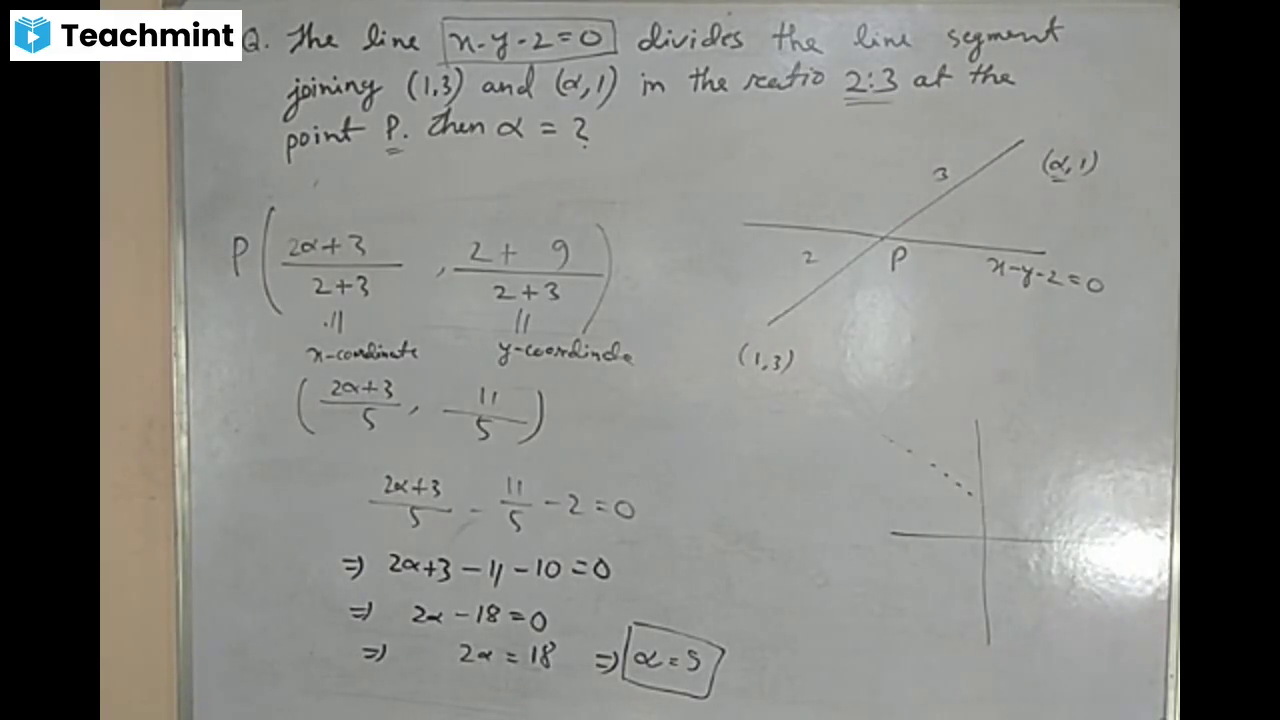 Teachmint
Q. The line x-y-2=0 divides the line segment
joining (1,3) and (α,1) in the ratio 2:3 at the
point P. Then α = ?
P ( 2α+3 / 2+3 , 2 + 9 / 2+3 )
॥ ॥
x-coordinate y-coordinate
( 2α+3 / 5 , 11 / 5 )
2α+3 / 5 - 11 / 5 - 2 = 0
⇒ 2α+3 - 11 - 10 = 0
⇒ 2α - 18 = 0
⇒ 2α = 18 ⇒ α = 9
3
(α,1)
2
P
x-y-2=0
(1,3)